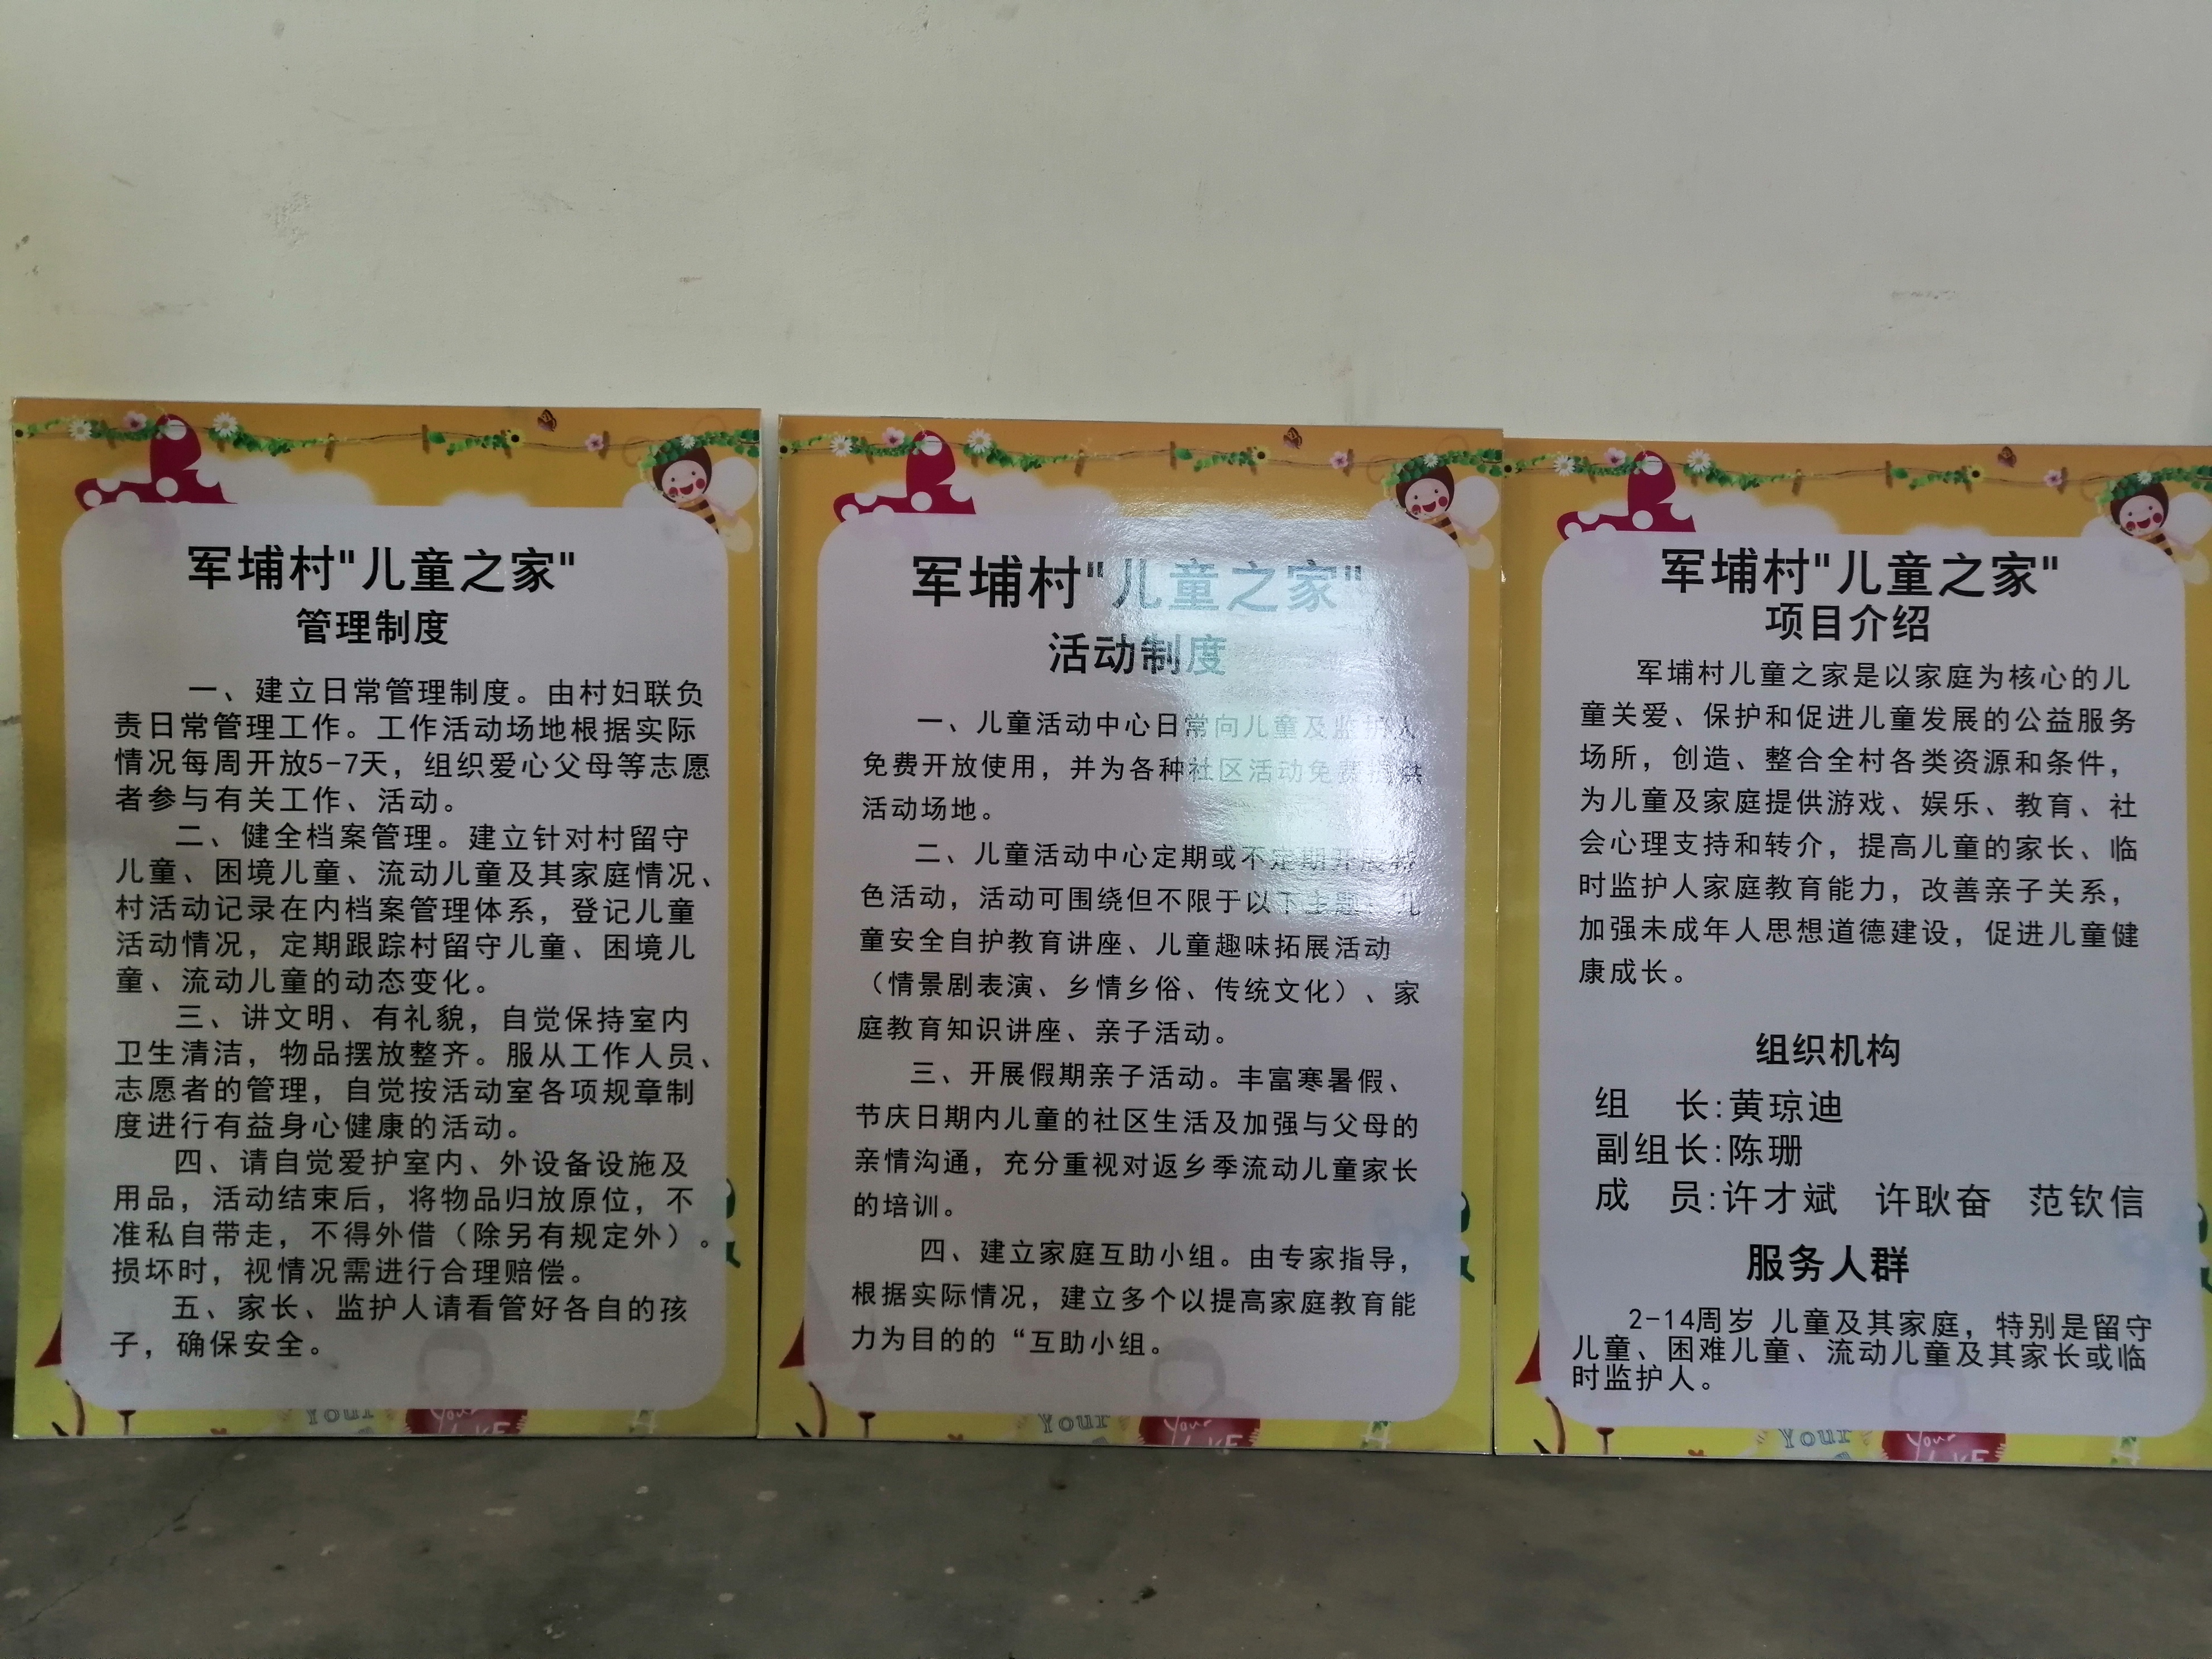 军埔村"儿童之家"
管理制度
一、建立日常管理制度。由村妇联负
责日常管理工作。工作活动场地根据实际
情况每周开放5-7天，组织爱心父母等志愿
者参与有关工作、活动。
二、健全档案管理。建立针对村留守
儿童、困境儿童、流动儿童及其家庭情况、
村活动记录在内档案管理体系，登记儿童
活动情况，定期跟踪村留守儿童、困境儿
童、流动儿童的动态变化。
三、讲文明、有礼貌，自觉保持室内
卫生清洁，物品摆放整齐。服从工作人员、
志愿者的管理，自觉按活动室各项规章制
度进行有益身心健康的活动。
四、请自觉爱护室内、外设备设施及
用品，活动结束后，将物品归放原位，不
准私自带走，不得外借（除另有规定外）。
损坏时，视情况需进行合理赔偿。
五、家长、监护人请看管好各自的孩
子，确保安全。
Your
Your
军埔村"儿童之家"
活动制度
一、儿童活动中心日常向儿童及监护人
免费开放使用，并为各种社区活动免费提供
活动场地。
二、儿童活动中心定期或不定期开展特
色活动，活动可围绕但不限于以下主题：儿
童安全自护教育讲座、儿童趣味拓展活动
（情景剧表演、乡情乡俗、传统文化）、家
庭教育知识讲座、亲子活动。
三、开展假期亲子活动。丰富寒暑假、
节庆日期内儿童的社区生活及加强与父母的
亲情沟通，充分重视对返乡季流动儿童家长
的培训。
四、建立家庭互助小组。由专家指导，
根据实际情况，建立多个以提高家庭教育能
力为目的的“互助小组。
Your
Your
军埔村"儿童之家"
项目介绍
军埔村儿童之家是以家庭为核心的儿
童关爱、保护和促进儿童发展的公益服务
场所，创造、整合全村各类资源和条件，
为儿童及家庭提供游戏、娱乐、教育、社
会心理支持和转介，提高儿童的家长、临
时监护人家庭教育能力，改善亲子关系，
加强未成年人思想道德建设，促进儿童健
康成长。
组织机构
组 长:黄琼迪
副组长:陈珊
成 员:许才斌 许耿奋 范钦信
服务人群
2-14周岁 儿童及其家庭，特别是留守
儿童、困难儿童、流动儿童及其家长或临
时监护人。
Your
Your